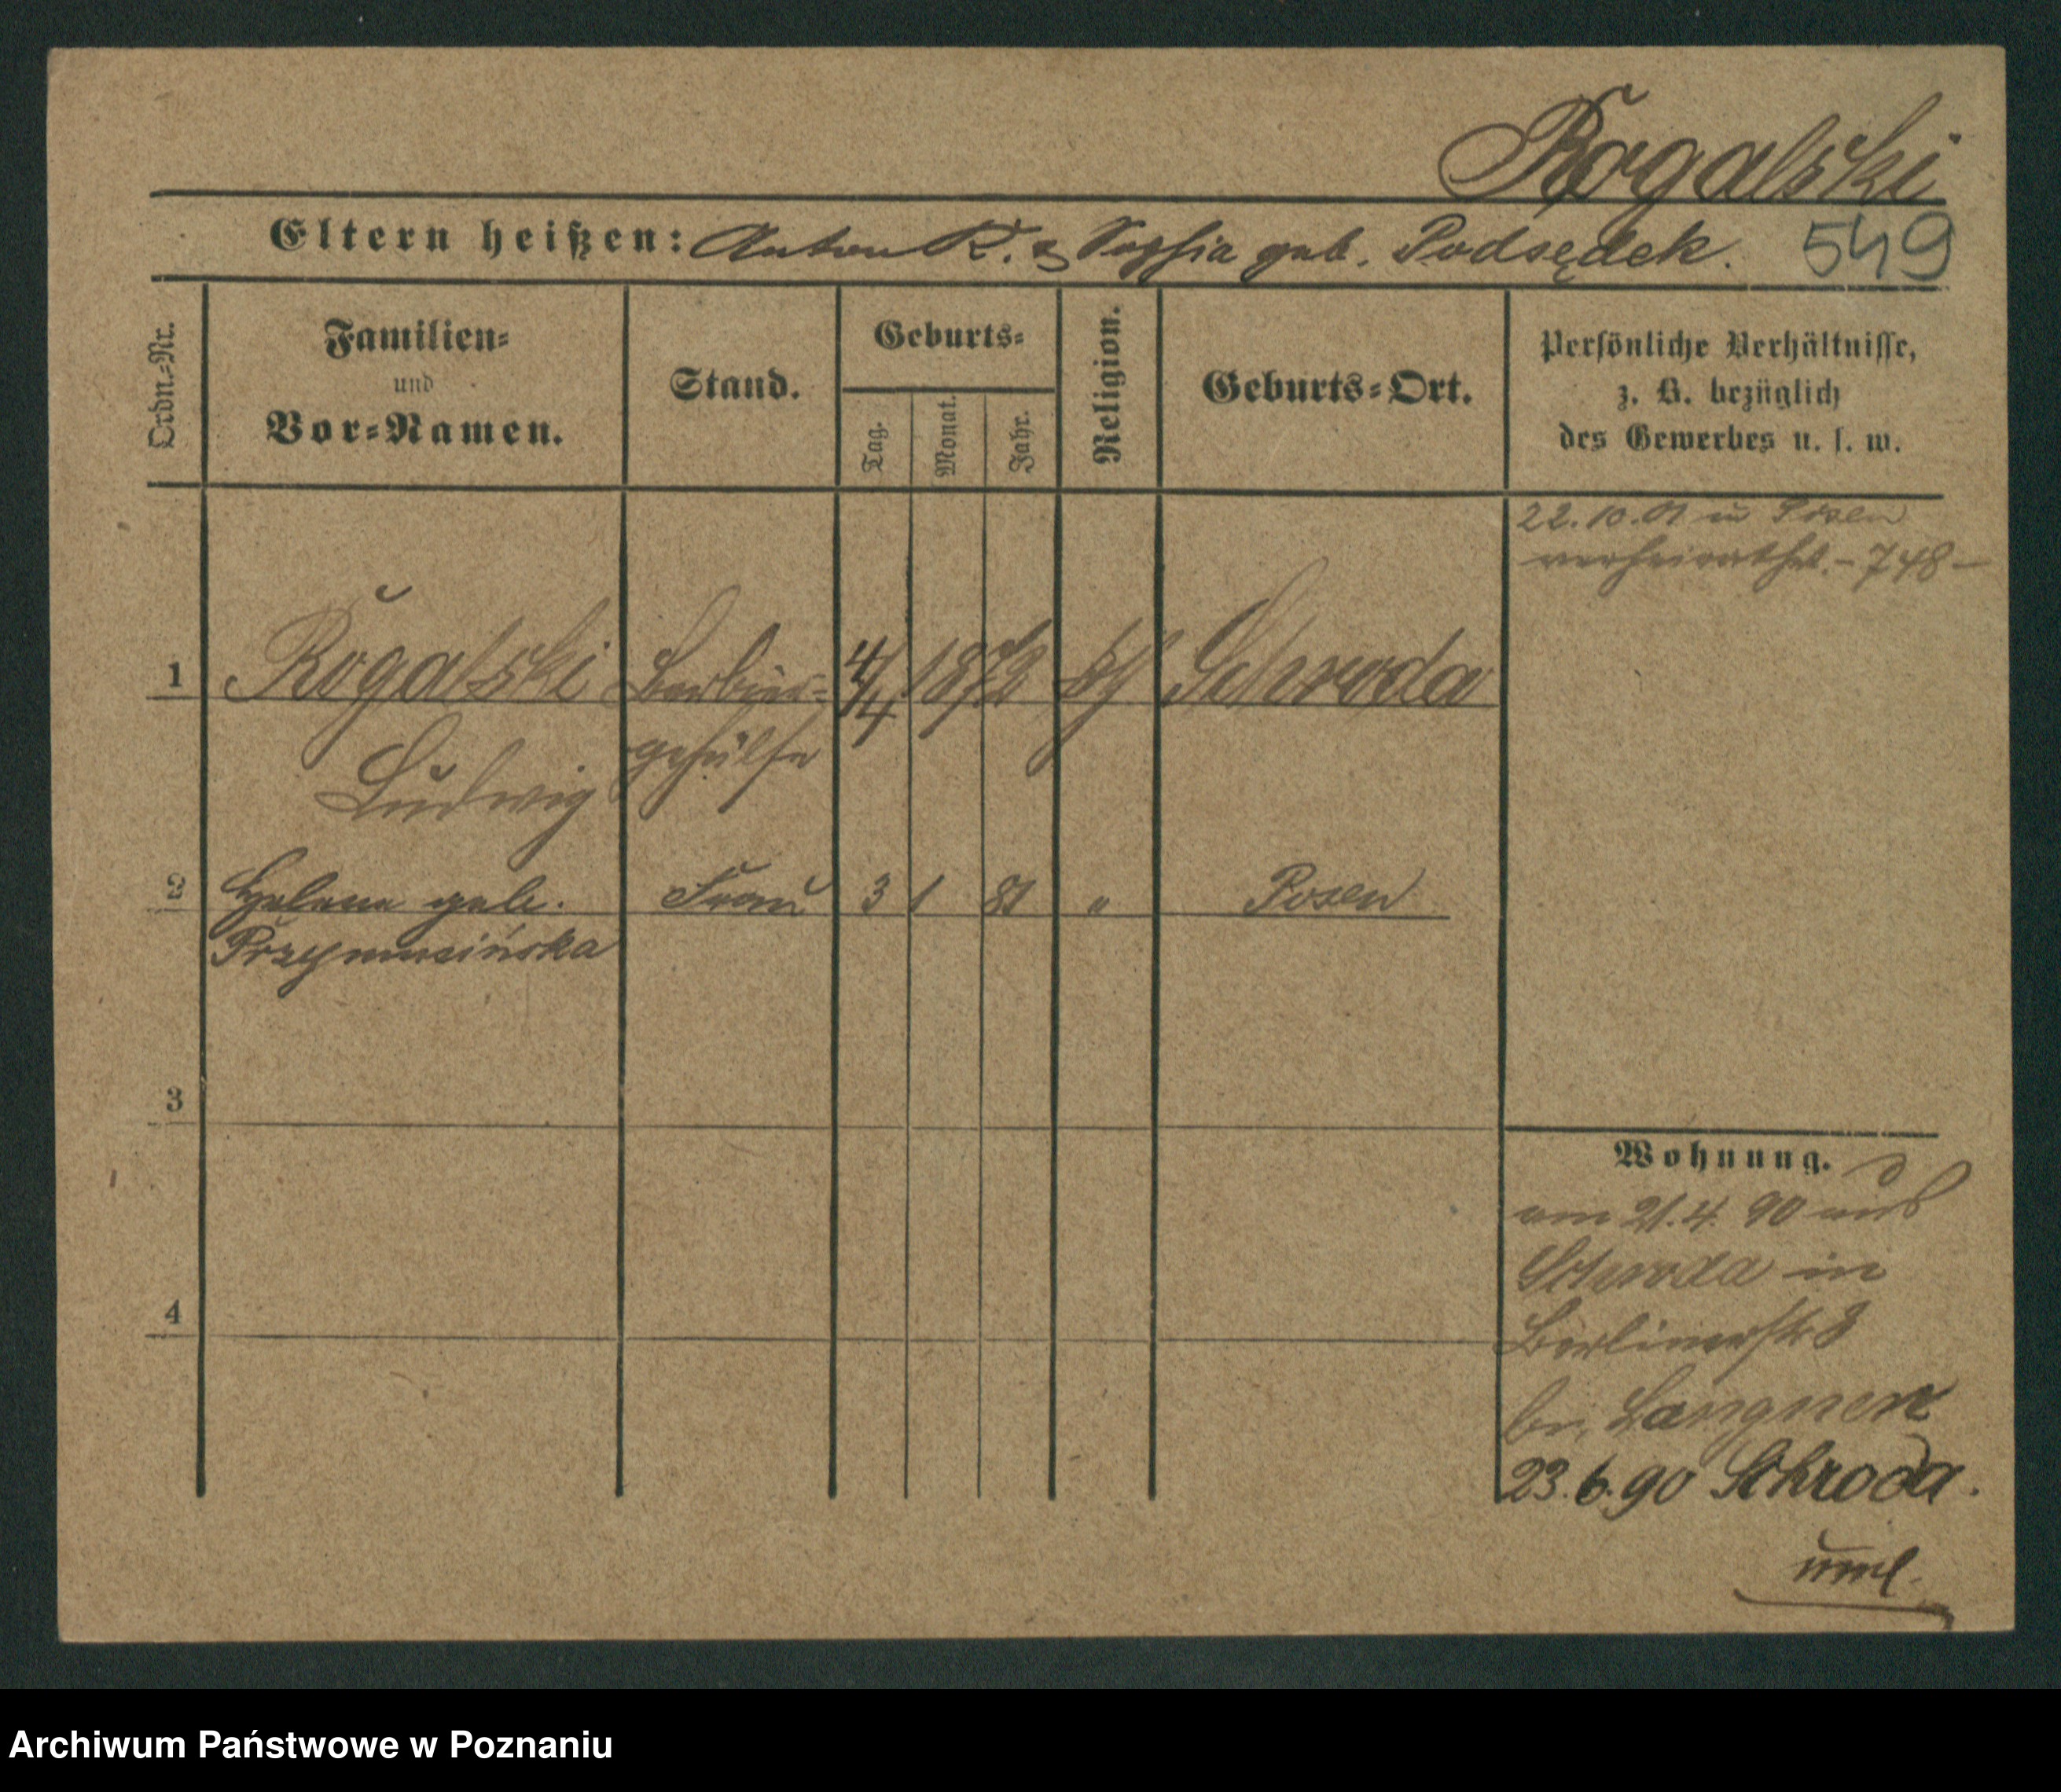 Rogalski
Eltern heißen: Anton R. & Sophia geb. Podsędek. 549
Ordn.-Nr.
Familien-
und
Vor-Namen.
Stand.
Geburts-
Tag.
Monat.
Jahr.
Religion.
Geburts-Ort.
Persönliche Verhältnisse,
z. B. bezüglich
des Gewerbes u. s. w.
22.10.01 in Posen
verheirathet. - 748 -
1 Rogalski Barbier- 4/4 1872 kth Schroda
Ludwig gehülfe
2 Helena geb. Frau 3 1 81 " Posen
Przymusińska
3
4
Wohnung.
am 21.4.90 aus
Schroda in
Berlinerstr 3
bei Langner
23.6.90 Schroda.
Archiwum Państwowe w Poznaniu